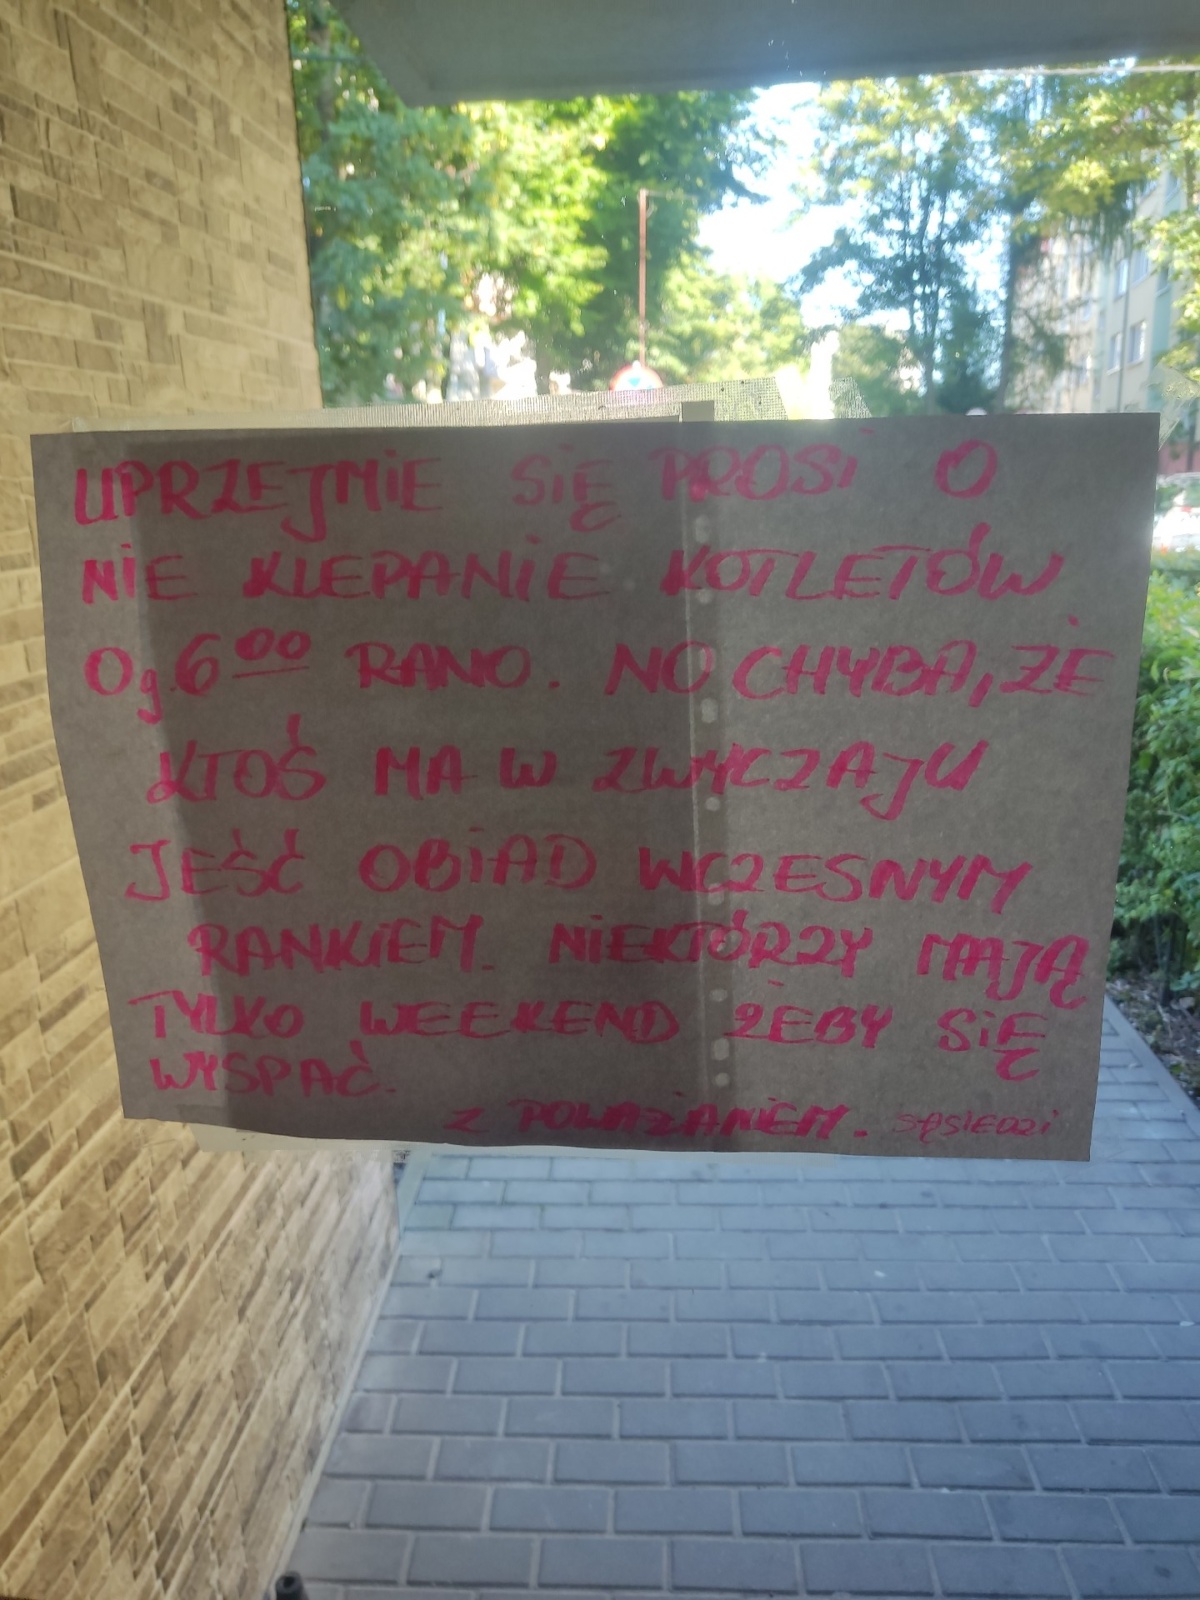 UPRZEJMIE SIĘ PROSI O
NIE KLEPANIE KOTLETÓW
O g.6⁰⁰ RANO. NO CHYBA, ŻE
KTOŚ MA W ZWYCZAJU
JEŚĆ OBIAD WCZESNYM
RANKIEM. NIEKTÓRZY MAJĄ
TYLKO WEEKEND ŻEBY SIĘ
WYSPAĆ.
Z POWAŻANIEM. SĄSIEDZI